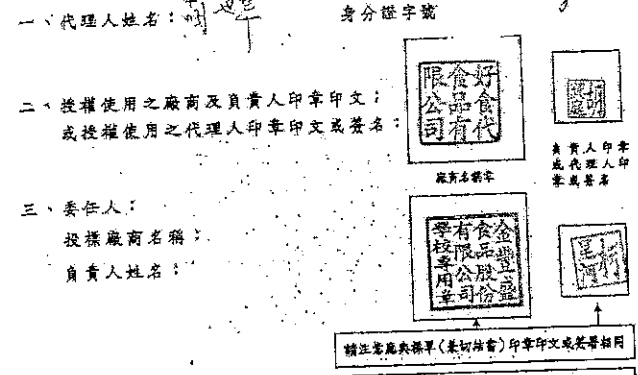 一、代理人姓名：
身分證字號
二、授權使用之廠商及負責人印章印文；
或授權使用之代理人印章印文或簽名：
好食代
食品有
限公司
廠商名稱章
負責人印章
或代理人印
章或簽名
三、委任人：
投標廠商名稱；
負責人姓名：
金豐盛
食品股份
有限公司
學校專用章
請注意應與標單(兼切結書)印章印文或簽署相同